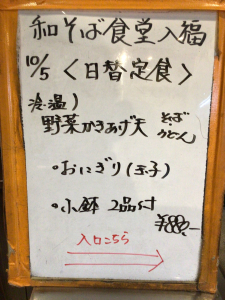 和そば食堂入福
10/5 〈日替定食〉
冷・温)
野菜かきあげ天 そば
うどん
・おにぎり(玉子)
・小鉢 2品付
¥880,-
入口こちら